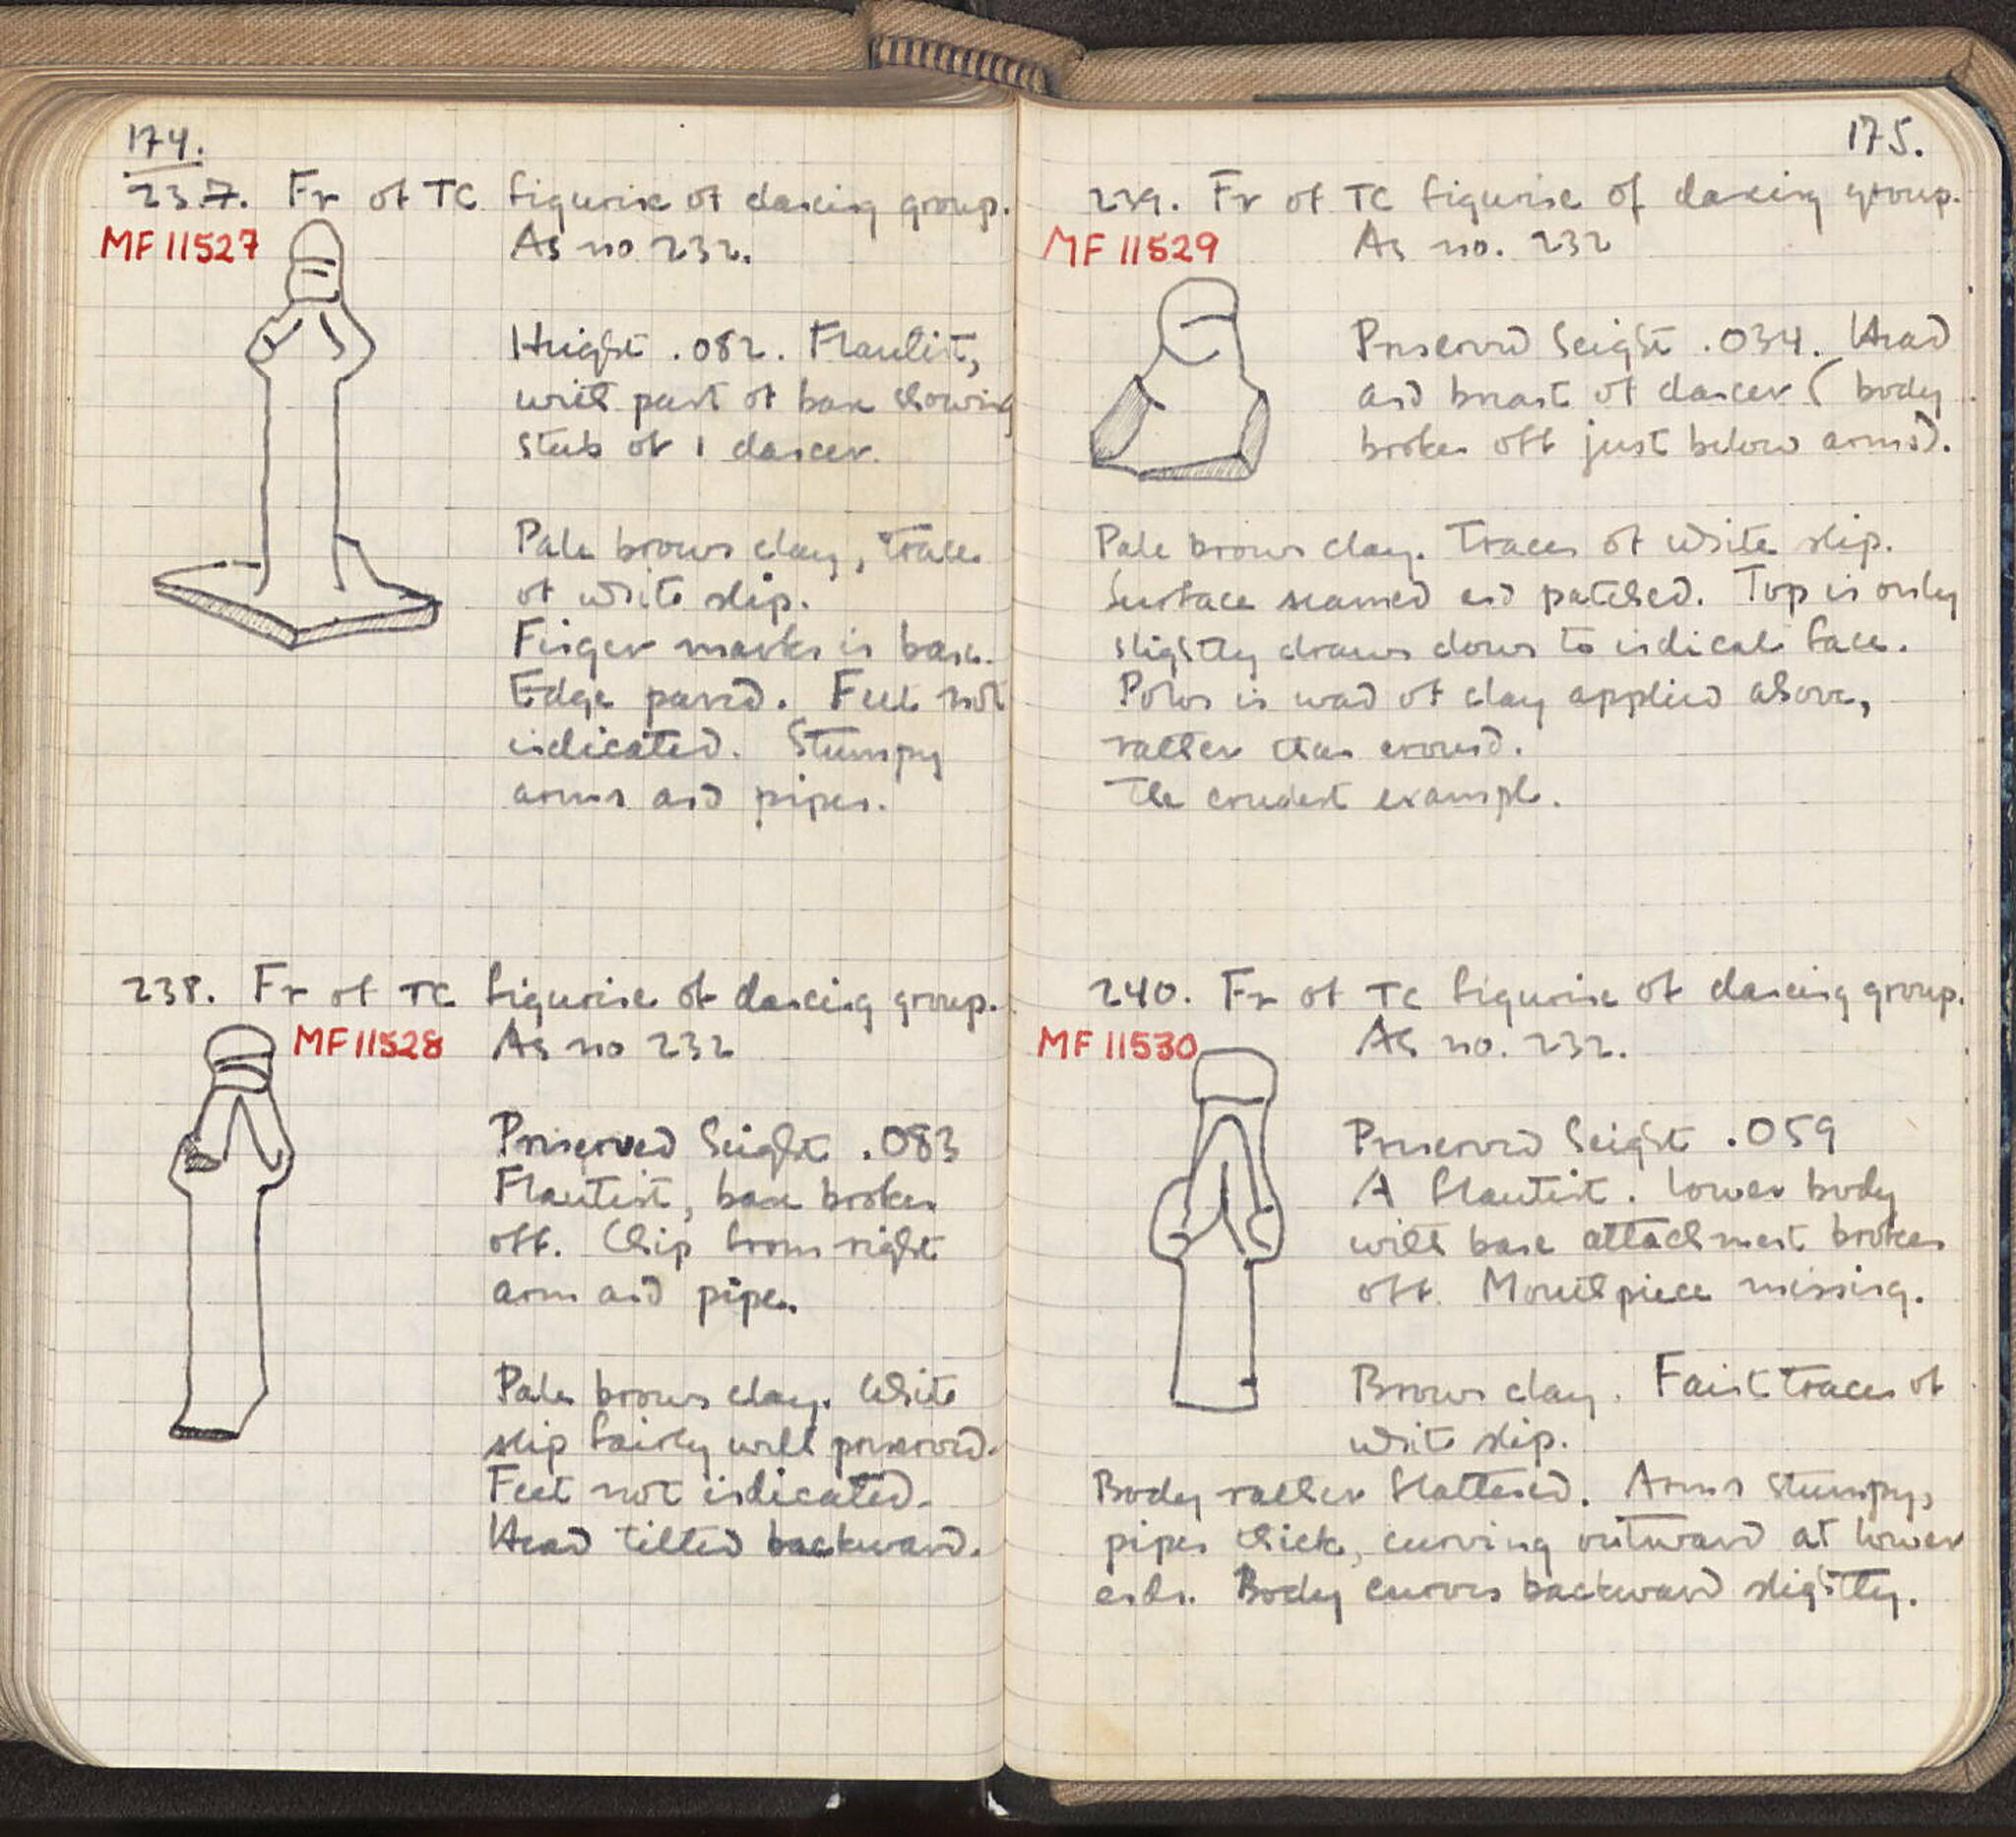 174.
237. Fr of TC figurine of dancing group.
MF 11527 As no 232.
Height .082. Flautist,
with part of base showing
stub of 1 dancer.
Pale brown clay, traces
of white slip.
Finger marks in base.
Edge pared. Feet not
indicated. Stumpy
arms and pipes.
238. Fr of TC figurine of dancing group.
MF 11528 As no 232
Preserved height .083
Flautist, base broken
off. Chip from right
arm and pipe.
Pale brown clay. White
slip fairly well preserved.
Feet not indicated.
Head tilted backward.
175.
239. Fr of TC figurine of dancing group.
MF 11529 As no. 232
Preserved height .034. Head
and breast of dancer (body
broken off just below arms).
Pale brown clay. Traces of white slip.
Surface seamed and patched. Top is only
slightly drawn down to indicate face.
Polos is wad of clay applied above,
rather than around.
The crudest example.
240. Fr of TC figurine of dancing group.
MF 11530 As no. 232.
Preserved height .059
A flautist. Lower body
with base attachment broken
off. Mouthpiece missing.
Brown clay. Faint traces of
white slip.
Body rather flattened. Arms stumpy,
pipes thick, curving outward at lower
ends. Body curves backward slightly.